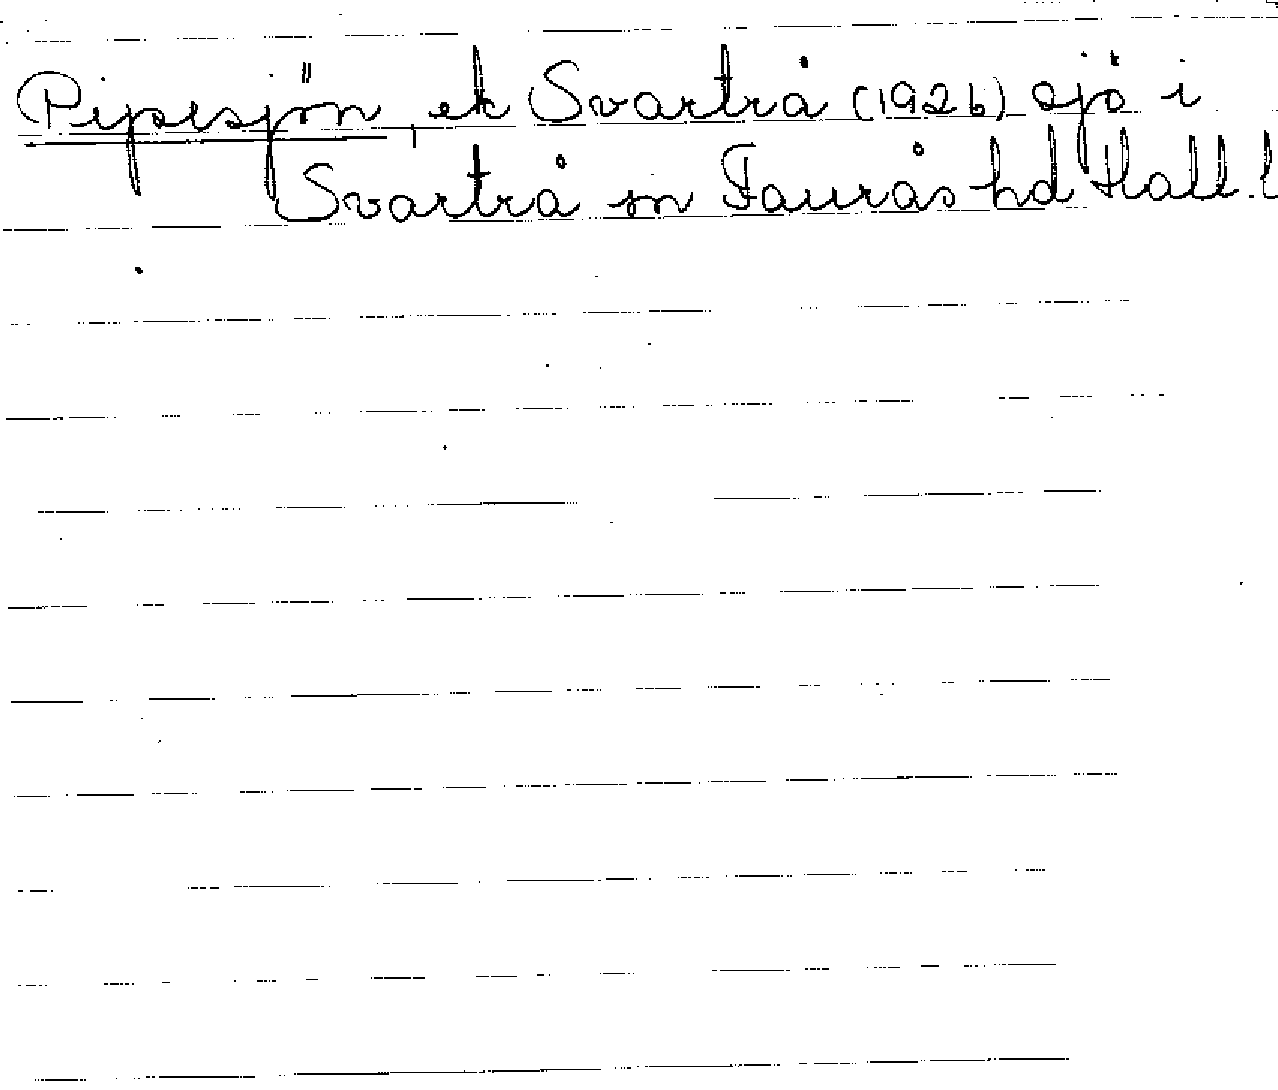 Pipesjön, ek Svartrå (1926) sjö i
Svartrå sn Faurås hd Hall. l